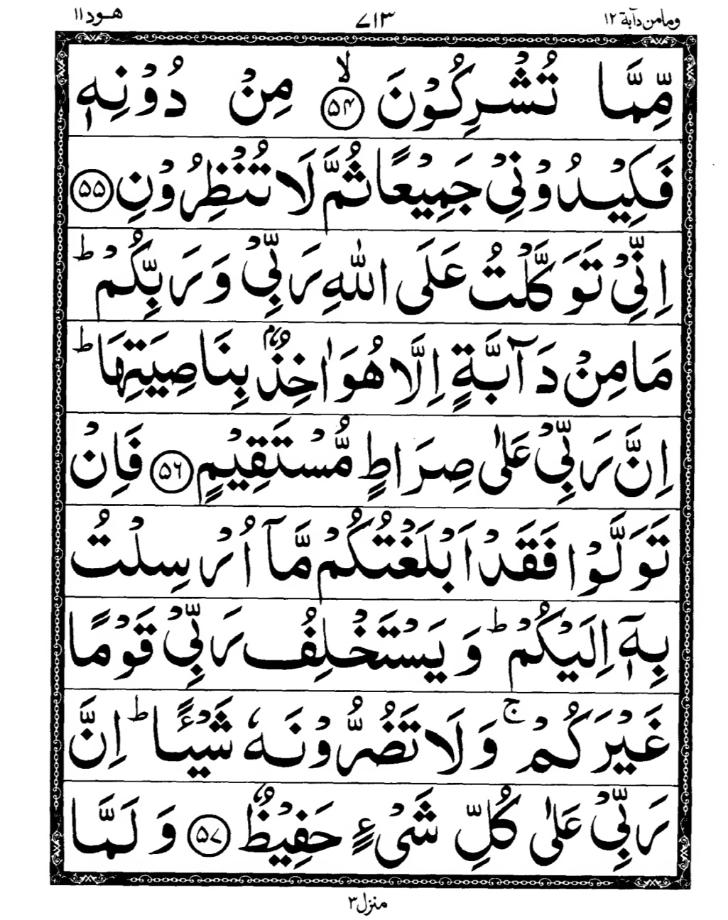 وما من دآبة ١٢ ٧١٣ هــود ١١
مِّمَّا تُشْرِكُوْنَ ۙ﴿۵۴﴾ مِنْ دُوْنِهٖ
فَكِيْدُوْنِيْ جَمِيْعًا ثُمَّ لَا تُنْظِرُوْنِ ﴿۵۵﴾
اِنِّيْ تَوَكَّلْتُ عَلَى اللّٰهِ رَبِّيْ وَرَبِّكُمْ ؕ
مَا مِنْ دَآبَّةٍ اِلَّا هُوَ اٰخِذٌۢ بِنَاصِيَتِهَا ؕ
اِنَّ رَبِّيْ عَلٰى صِرَاطٍ مُّسْتَقِيْمٍ ﴿۵۶﴾ فَاِنْ
تَوَلَّوْا فَقَدْ اَبْلَغْتُكُمْ مَّآ اُرْسِلْتُ
بِهٖٓ اِلَيْكُمْ ؕ وَيَسْتَخْلِفُ رَبِّيْ قَوْمًا
غَيْرَكُمْ ۚ وَلَا تَضُرُّوْنَهٗ شَيْـًٔا ؕ اِنَّ
رَبِّيْ عَلٰى كُلِّ شَيْءٍ حَفِيْظٌ ﴿۵۷﴾ وَلَمَّا
منزل ٣